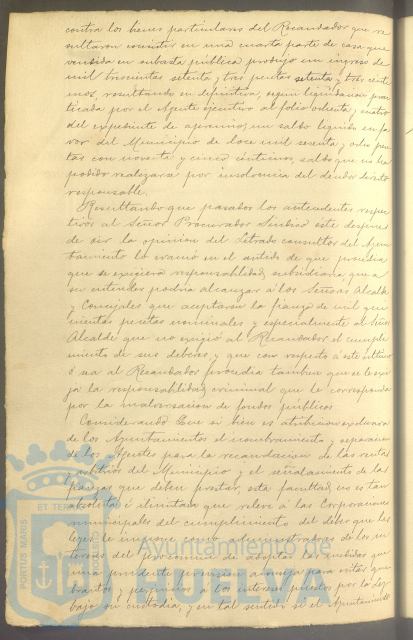 contra los bienes particulares del Recaudador que re
sultaron consistir en una cuarta parte de casa que
vendida en subasta pública produjo un ingreso de
mil trescientas setenta y tres pesetas setenta y tres cénti
mos, resultando en definitiva, según liquidación prac
ticada por el Agente ejecutivo al folio ochenta y cuatro
del expediente de apremio, un saldo líquido en fa
vor del Municipio de doce mil sesenta y ocho pese
tas con noventa y cinco céntimos, saldo que no ha
podido realizarse por insolvencia del deudor directo
responsable.
Resultando que pasados los antecedentes respec
tivos al Señor Procurador Síndico este después
de oir la opinión del Letrado consultor del Ayun
tamiento lo evacuó en el sentido de que procedía
que se exigiera responsabilidad subsidiaria que a
su entender podría alcanzar a los Señores Alcalde
y Concejales que aceptaron la fianza de mil qui
nientas pesetas nominales y especialmente al Señor
Alcalde que no exigió al Recaudador el cumpli
miento de sus deberes y que con respecto a este último
ó sea al Recaudador procedía tambien que se le exi
ja la responsabilidad criminal que le corresponda
por la malversación de fondos públicos
Considerando Que si bien es atribución exclusiva
de los Ayuntamientos el nombramiento y separación
de los Agentes para la recaudación de las rentas
y arbitrios del Municipio y el señalamiento de las
fianzas que deben prestar, esta facultad no es tan
absoluta é ilimitada que releve á las Corporaciones
municipales del cumplimiento del deber que las
leyes le impone como administradoras de los in
tereses del procomún de adoptar las medidas que
una prudente previsión aconseja para evitar que
brantos y perjuicios a los intereses puestos por la Ley
bajo su custodia, y en tal sentido si el Ayuntamiento
PORTUS MARIS
ET TERRAE
CUSTODIA
Ayuntamiento de
HUELVA